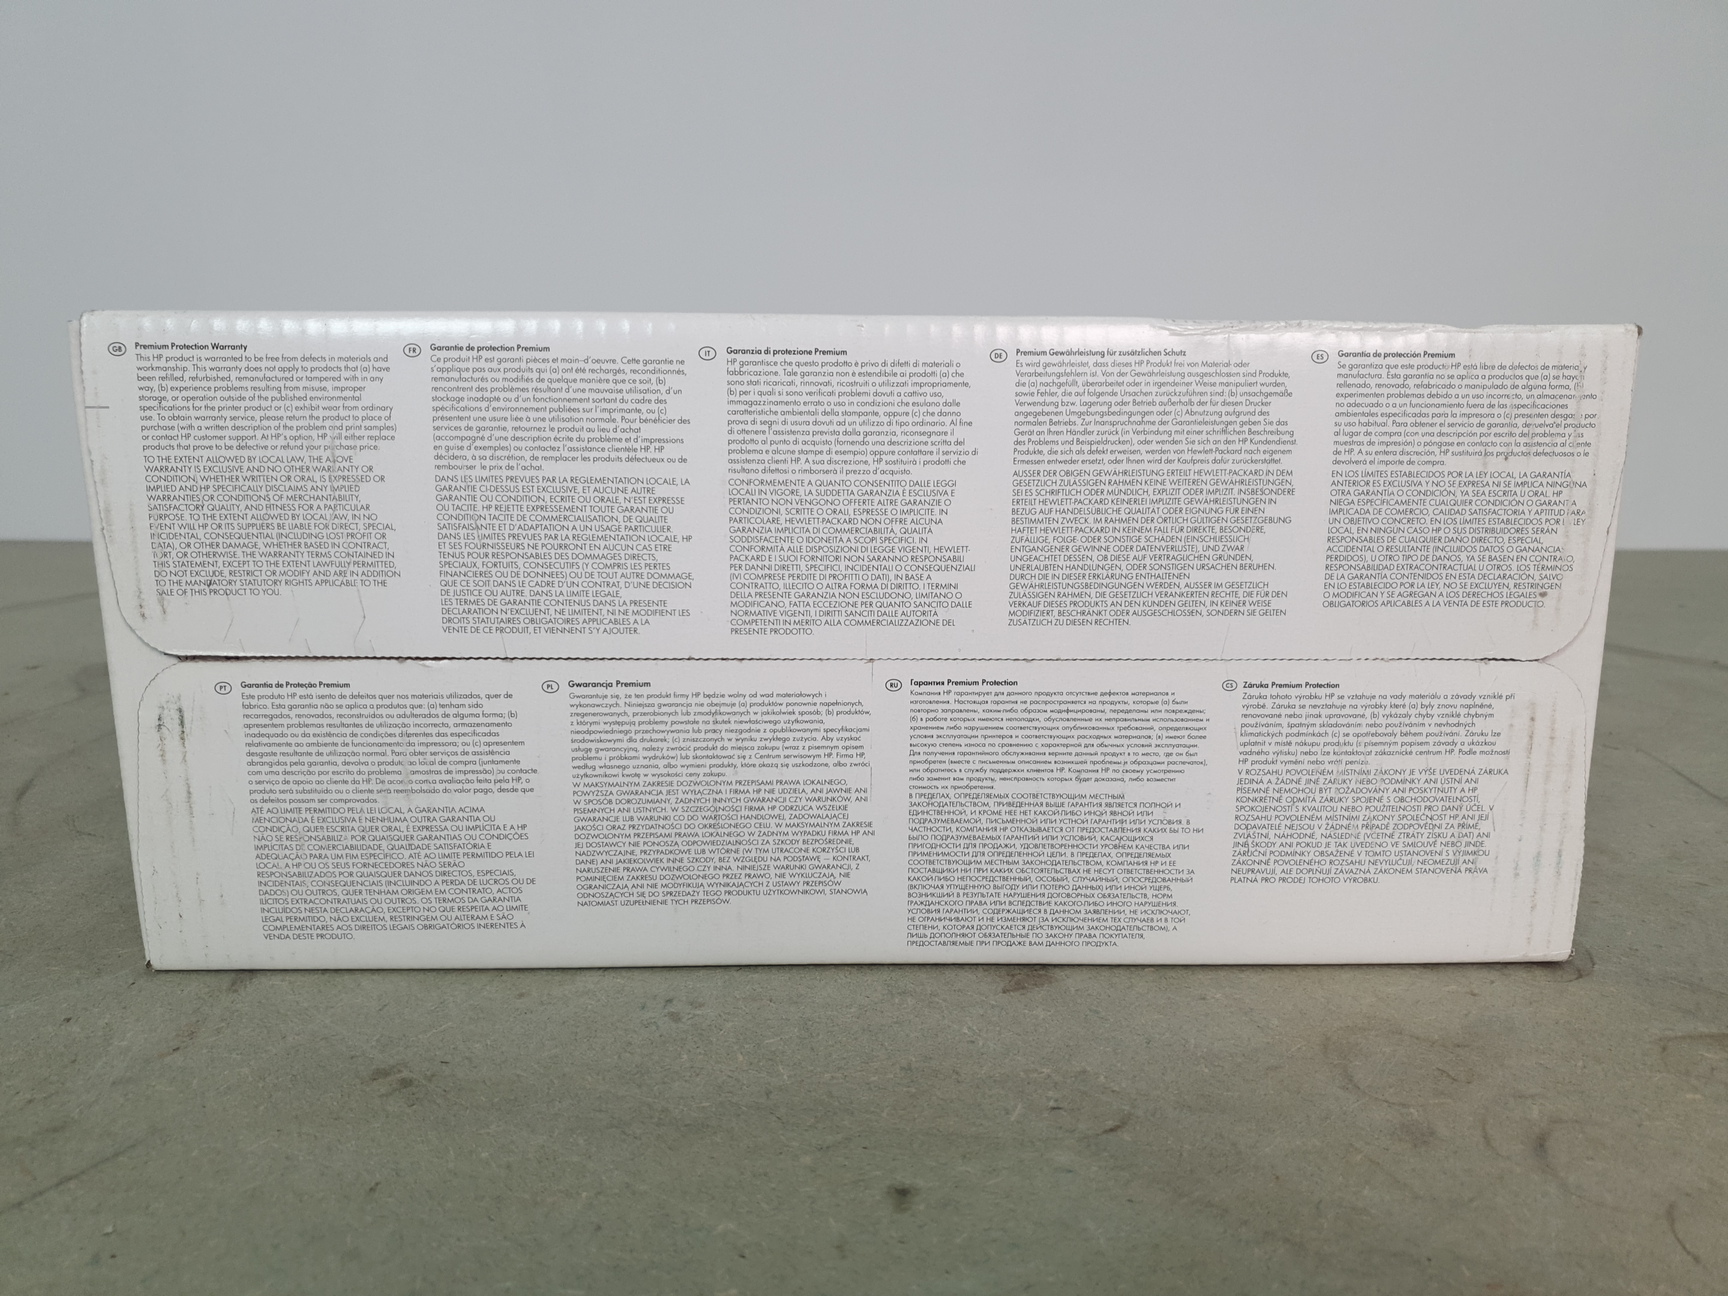 GB Premium Protection Warranty
This HP product is warranted to be free from defects in materials and
workmanship. This warranty does not apply to products that (a) have
been refilled, refurbished, remanufactured or tampered with in any
way, (b) experience problems resulting from misuse, improper
storage, or operation outside of the published environmental
specifications for the printer product or (c) exhibit wear from ordinary
use. To obtain warranty service, please return the product to place of
purchase (with a description of the problem and print samples)
or contact HP customer support. At HP's option, HP will either replace
products that prove to be defective or refund your purchase price.
TO THE EXTENT ALLOWED BY LOCAL LAW, THE ABOVE
WARRANTY IS EXCLUSIVE AND NO OTHER WARRANTY OR
CONDITION, WHETHER WRITTEN OR ORAL, IS EXPRESSED OR
IMPLIED AND HP SPECIFICALLY DISCLAIMS ANY IMPLIED
WARRANTIES OR CONDITIONS OF MERCHANTABILITY,
SATISFACTORY QUALITY, AND FITNESS FOR A PARTICULAR
PURPOSE. TO THE EXTENT ALLOWED BY LOCAL LAW, IN NO
EVENT WILL HP OR ITS SUPPLIERS BE LIABLE FOR DIRECT, SPECIAL,
INCIDENTAL, CONSEQUENTIAL (INCLUDING LOST PROFIT OR
DATA), OR OTHER DAMAGE, WHETHER BASED IN CONTRACT,
TORT, OR OTHERWISE. THE WARRANTY TERMS CONTAINED IN
THIS STATEMENT, EXCEPT TO THE EXTENT LAWFULLY PERMITTED,
DO NOT EXCLUDE, RESTRICT OR MODIFY AND ARE IN ADDITION
TO THE MANDATORY STATUTORY RIGHTS APPLICABLE TO THE
SALE OF THIS PRODUCT TO YOU.
FR Garantie de protection Premium
Ce produit HP est garanti pièces et main-d'oeuvre. Cette garantie ne
s'applique pas aux produits qui (a) ont été rechargés, reconditionnés,
remanufacturés ou modifiés de quelque manière que ce soit, (b)
rencontrent des problèmes résultant d'une mauvaise utilisation, d'un
stockage inadapté ou d'un fonctionnement sortant du cadre des
spécifications d'environnement publiées sur l'imprimante, ou (c)
présentent une usure liée à une utilisation normale. Pour bénéficier des
services de garantie, retournez le produit au lieu d'achat
(accompagné d'une description écrite du problème et d'impressions
en guise d'exemples) ou contactez l'assistance clientèle HP. HP
décidera, à sa discrétion, de remplacer les produits défectueux ou de
rembourser le prix de l'achat.
DANS LES LIMITES PREVUES PAR LA REGLEMENTATION LOCALE, LA
GARANTIE CI-DESSUS EST EXCLUSIVE, ET AUCUNE AUTRE
GARANTIE OU CONDITION, ECRITE OU ORALE, N'EST EXPRESSE
OU TACITE. HP REJETTE EXPRESSEMENT TOUTE GARANTIE OU
CONDITION TACITE DE COMMERCIALISATION, DE QUALITE
SATISFAISANTE ET D'ADAPTATION A UN USAGE PARTICULIER.
DANS LES LIMITES PREVUES PAR LA REGLEMENTATION LOCALE, HP
ET SES FOURNISSEURS NE POURRONT EN AUCUN CAS ETRE
TENUS POUR RESPONSABLES DES DOMMAGES DIRECTS,
SPECIAUX, FORTUITS, CONSECUTIFS (Y COMPRIS LES PERTES
FINANCIERES OU DE DONNEES) OU DE TOUT AUTRE DOMMAGE,
QUE CE SOIT DANS LE CADRE D'UN CONTRAT, D'UNE DECISION
DE JUSTICE OU AUTRE. DANS LA LIMITE LEGALE,
LES TERMES DE GARANTIE CONTENUS DANS LA PRESENTE
DECLARATION N'EXCLUENT, NE LIMITENT, NI NE MODIFIENT LES
DROITS STATUTAIRES OBLIGATOIRES APPLICABLES A LA
VENTE DE CE PRODUIT, ET VIENNENT S'Y AJOUTER.
IT Garanzia di protezione Premium
HP garantisce che questo prodotto è privo di difetti di materiali o
fabbricazione. Tale garanzia non è estendibile ai prodotti (a) che
sono stati ricaricati, rinnovati, ricostruiti o utilizzati impropriamente,
(b) per i quali si sono verificati problemi dovuti a cattivo uso,
immagazzinamento errato o uso in condizioni che esulano dalle
caratteristiche ambientali della stampante, oppure (c) che danno
prova di segni di usura dovuti ad un utilizzo di tipo ordinario. Al fine
di ottenere l'assistenza prevista dalla garanzia, riconsegnare il
prodotto al punto di acquisto (fornendo una descrizione scritta del
problema e alcune stampe di esempio) oppure contattare il servizio di
assistenza clienti HP. A sua discrezione, HP sostituirà i prodotti che
risultano difettosi o rimborserà il prezzo d'acquisto.
CONFORMEMENTE A QUANTO CONSENTITO DALLE LEGGI
LOCALI IN VIGORE, LA SUDDETTA GARANZIA È ESCLUSIVA E
PERTANTO NON VENGONO OFFERTE ALTRE GARANZIE O
CONDIZIONI, SCRITTE O ORALI, ESPRESSE O IMPLICITE. IN
PARTICOLARE, HEWLETT-PACKARD NON OFFRE ALCUNA
GARANZIA IMPLICITA DI COMMERCIABILITÀ, QUALITÀ
SODDISFACENTE O IDONEITÀ A SCOPI SPECIFICI. IN
CONFORMITÀ ALLE DISPOSIZIONI DI LEGGE VIGENTI, HEWLETT-
PACKARD E I SUOI FORNITORI NON SARANNO RESPONSABILI
PER DANNI DIRETTI, SPECIFICI, INCIDENTALI O CONSEQUENZIALI
(IVI COMPRESE PERDITE DI PROFITTI O DATI), IN BASE A
CONTRATTO, ILLECITO O ALTRA FORMA DI DIRITTO. I TERMINI
DELLA PRESENTE GARANZIA NON ESCLUDONO, LIMITANO O
MODIFICANO, FATTA ECCEZIONE PER QUANTO SANCITO DALLE
NORMATIVE VIGENTI, I DIRITTI SANCITI DALLE AUTORITÀ
COMPETENTI IN MERITO ALLA COMMERCIALIZZAZIONE DEL
PRESENTE PRODOTTO.
DE Premium Gewährleistung für zusätzlichen Schutz
Es wird gewährleistet, dass dieses HP Produkt frei von Material- oder
Verarbeitungsfehlern ist. Von der Gewährleistung ausgeschlossen sind Produkte,
die (a) nachgefüllt, überarbeitet oder in irgendeiner Weise manipuliert wurden,
sowie Fehler, die auf folgende Ursachen zurückzuführen sind: (b) unsachgemäße
Verwendung bzw. Lagerung oder Betrieb außerhalb der für diesen Drucker
angegebenen Umgebungsbedingungen oder (c) Abnutzung aufgrund des
normalen Betriebs. Zur Inanspruchnahme der Garantieleistungen geben Sie das
Gerät an Ihren Händler zurück (in Verbindung mit einer schriftlichen Beschreibung
des Problems und Beispieldrucken), oder wenden Sie sich an den HP Kundendienst.
Produkte, die sich als defekt erweisen, werden von Hewlett-Packard nach eigenem
Ermessen entweder ersetzt, oder Ihnen wird der Kaufpreis dafür zurückerstattet.
AUSSER DER OBIGEN GEWÄHRLEISTUNG ERTEILT HEWLETT-PACKARD IN DEM
GESETZLICH ZULÄSSIGEN RAHMEN KEINE WEITEREN GEWÄHRLEISTUNGEN,
SEI ES SCHRIFTLICH ODER MÜNDLICH, EXPLIZIT ODER IMPLIZIT. INSBESONDERE
ERTEILT HEWLETT-PACKARD KEINERLEI IMPLIZITE GEWÄHRLEISTUNGEN IN
BEZUG AUF HANDELSÜBLICHE QUALITÄT ODER EIGNUNG FÜR EINEN
BESTIMMTEN ZWECK. IM RAHMEN DER ÖRTLICH GÜLTIGEN GESETZGEBUNG
HAFTET HEWLETT-PACKARD IN KEINEM FALL FÜR DIREKTE, BESONDERE,
ZUFÄLLIGE, FOLGE- ODER SONSTIGE SCHÄDEN (EINSCHLIESSLICH
ENTGANGENER GEWINNE ODER DATENVERLUSTE), UND ZWAR
UNGEACHTET DESSEN, OB DIESE AUF VERTRAGLICHEN GRÜNDEN,
UNERLAUBTEN HANDLUNGEN, ODER SONSTIGEN URSACHEN BERUHEN.
DURCH DIE IN DIESER ERKLÄRUNG ENTHALTENEN
GEWÄHRLEISTUNGSBEDINGUNGEN WERDEN, AUSSER IM GESETZLICH
ZULÄSSIGEN RAHMEN, DIE GESETZLICH VERANKERTEN RECHTE, DIE FÜR DEN
VERKAUF DIESES PRODUKTS AN DEN KUNDEN GELTEN, IN KEINER WEISE
MODIFIZIERT, BESCHRÄNKT ODER AUSGESCHLOSSEN, SONDERN SIE GELTEN
ZUSÄTZLICH ZU DIESEN RECHTEN.
ES Garantía de protección Premium
Se garantiza que este producto HP está libre de defectos de material y
manufactura. Esta garantía no se aplica a productos que (a) se hayan
rellenado, renovado, refabricado o manipulado de alguna forma, (b)
experimenten problemas debido a un uso incorrecto, un almacenamiento
no adecuado o a un funcionamiento fuera de las especificaciones
ambientales especificadas para la impresora o (c) presenten desgaste por
su uso habitual. Para obtener el servicio de garantía, devuelva el producto
al lugar de compra (con una descripción por escrito del problema y las
muestras de impresión) o póngase en contacto con la asistencia al cliente
de HP. A su entera discreción, HP sustituirá los productos defectuosos o le
devolverá el importe de compra.
EN LOS LÍMITES ESTABLECIDOS POR LA LEY LOCAL, LA GARANTÍA
ANTERIOR ES EXCLUSIVA Y NO SE EXPRESA NI SE IMPLICA NINGUNA
OTRA GARANTÍA O CONDICIÓN, YA SEA ESCRITA U ORAL. HP
NIEGA ESPECÍFICAMENTE CUALQUIER CONDICIÓN O GARANTÍA
IMPLICADA DE COMERCIO, CALIDAD SATISFACTORIA Y APTITUD PARA
UN OBJETIVO CONCRETO. EN LOS LÍMITES ESTABLECIDOS POR LA LEY
LOCAL, EN NINGÚN CASO HP O SUS DISTRIBUIDORES SERÁN
RESPONSABLES DE CUALQUIER DAÑO DIRECTO, ESPECIAL,
ACCIDENTAL O RESULTANTE (INCLUIDOS DATOS O GANANCIAS
PERDIDOS), U OTRO TIPO DE DAÑOS, YA SE BASEN EN CONTRATO,
RESPONSABILIDAD EXTRACONTRACTUAL U OTROS. LOS TÉRMINOS
DE LA GARANTÍA CONTENIDOS EN ESTA DECLARACIÓN, SALVO
EN LO ESTABLECIDO POR LA LEY, NO SE EXCLUYEN, RESTRINGEN
O MODIFICAN Y SE AGREGAN A LOS DERECHOS LEGALES
OBLIGATORIOS APLICABLES A LA VENTA DE ESTE PRODUCTO.
PT Garantia de Proteção Premium
Este produto HP está isento de defeitos quer nos materiais utilizados, quer de
fabrico. Esta garantia não se aplica a produtos que: (a) tenham sido
recarregados, renovados, reconstruídos ou adulterados de alguma forma; (b)
apresentem problemas resultantes de utilização incorreta, armazenamento
inadequado ou da existência de condições diferentes das especificadas
relativamente ao ambiente de funcionamento da impressora; ou (c) apresentem
desgaste resultante de utilização normal. Para obter serviços de assistência
abrangidos pela garantia, devolva o produto ao local de compra (juntamente
com uma descrição por escrito do problema e amostras de impressão) ou contacte
o serviço de apoio ao cliente da HP. De acordo com a avaliação feita pela HP, o
produto será substituído ou o cliente será reembolsado do valor pago, desde que
os defeitos possam ser comprovados.
ATÉ AO LIMITE PERMITIDO PELA LEI LOCAL, A GARANTIA ACIMA
MENCIONADA É EXCLUSIVA E NENHUMA OUTRA GARANTIA OU
CONDIÇÃO, QUER ESCRITA QUER ORAL, É EXPRESSA OU IMPLÍCITA E A HP
NÃO SE RESPONSABILIZA POR QUAISQUER GARANTIAS OU CONDIÇÕES
IMPLÍCITAS DE COMERCIABILIDADE, QUALIDADE SATISFATÓRIA E
ADEQUAÇÃO PARA UM FIM ESPECÍFICO. ATÉ AO LIMITE PERMITIDO PELA LEI
LOCAL, A HP OU OS SEUS FORNECEDORES NÃO SERÃO
RESPONSABILIZADOS POR QUAISQUER DANOS DIRECTOS, ESPECIAIS,
INCIDENTAIS, CONSEQUENCIAIS (INCLUINDO A PERDA DE LUCROS OU DE
DADOS) OU OUTROS, QUER TENHAM ORIGEM EM CONTRATO, ACTOS
ILÍCITOS EXTRACONTRATUAIS OU OUTROS. OS TERMOS DA GARANTIA
INCLUÍDOS NESTA DECLARAÇÃO, EXCEPTO NO QUE RESPEITA AO LIMITE
LEGAL PERMITIDO, NÃO EXCLUEM, RESTRINGEM OU ALTERAM E SÃO
COMPLEMENTARES AOS DIREITOS LEGAIS OBRIGATÓRIOS INERENTES À
VENDA DESTE PRODUTO.
PL Gwarancja Premium
Gwarantuje się, że ten produkt firmy HP będzie wolny od wad materiałowych i
wykonawczych. Niniejsza gwarancja nie obejmuje (a) produktów ponownie napełnionych,
zregenerowanych, przerobionych lub zmodyfikowanych w jakikolwiek sposób; (b) produktów,
z którymi występują problemy powstałe na skutek niewłaściwego użytkowania,
nieodpowiedniego przechowywania lub pracy niezgodnie z opublikowanymi specyfikacjami
środowiskowymi dla drukarek; (c) zniszczonych w wyniku zwykłego zużycia. Aby uzyskać
usługę gwarancyjną, należy zwrócić produkt do miejsca zakupu (wraz z pisemnym opisem
problemu i próbkami wydruków) lub skontaktować się z Centrum serwisowym HP. Firma HP,
według własnego uznania, albo wymieni produkty, które okażą się uszkodzone, albo zwróci
użytkownikowi kwotę w wysokości ceny zakupu.
W MAKSYMALNYM ZAKRESIE DOZWOLONYM PRZEPISAMI PRAWA LOKALNEGO,
POWYŻSZA GWARANCJA JEST WYŁĄCZNA I FIRMA HP NIE UDZIELA, ANI JAWNIE ANI
W SPOSÓB DOROZUMIANY, ŻADNYCH INNYCH GWARANCJI CZY WARUNKÓW, ANI
PISEMNYCH ANI USTNYCH. W SZCZEGÓLNOŚCI FIRMA HP ODRZUCA WSZELKIE
GWARANCJE LUB WARUNKI CO DO WARTOŚCI HANDLOWEJ, ZADOWALAJĄCEJ
JAKOŚCI ORAZ PRZYDATNOŚCI DO OKREŚLONEGO CELU. W MAKSYMALNYM ZAKRESIE
DOZWOLONYM PRZEPISAMI PRAWA LOKALNEGO W ŻADNYM WYPADKU FIRMA HP ANI
JEJ DOSTAWCY NIE PONOSZĄ ODPOWIEDZIALNOŚCI ZA SZKODY BEZPOŚREDNIE,
NADZWYCZAJNE, PRZYPADKOWE LUB WTÓRNE (W TYM UTRACONE KORZYŚCI LUB
DANE) ANI JAKIEKOLWIEK INNE SZKODY, BEZ WZGLĘDU NA PODSTAWĘ — KONTRAKT,
NARUSZENIE PRAWA CYWILNEGO CZY INNA. NINIEJSZE WARUNKI GWARANCJI, Z
POMINIĘCIEM ZAKRESU DOZWOLONEGO PRZEZ PRAWO, NIE WYKLUCZAJĄ, NIE
OGRANICZAJĄ ANI NIE MODYFIKUJĄ WYNIKAJĄCYCH Z USTAWY PRZEPISÓW
ODNOSZĄCYCH SIĘ DO SPRZEDAŻY TEGO PRODUKTU UŻYTKOWNIKOWI, STANOWIĄ
NATOMIAST UZUPEŁNIENIE TYCH PRZEPISÓW.
RU Гарантия Premium Protection
Компания HP гарантирует для данного продукта отсутствие дефектов материалов и
изготовления. Настоящая гарантия не распространяется на продукты, которые (а) были
повторно заправлены, каким-либо образом модифицированы, переделаны или повреждены;
(б) в работе которых имеются неполадки, обусловленные их неправильным использованием и
хранением либо нарушением соответствующих опубликованных требований, определяющих
условия эксплуатации принтеров и соответствующих расходных материалов; (в) имеют более
высокую степень износа по сравнению с характерной для обычных условий эксплуатации.
Для получения гарантийного обслуживания верните данный продукт в то место, где он был
приобретен (вместе с письменным описанием возникшей проблемы и образцами распечаток),
или обратитесь в службу поддержки клиентов HP. Компания HP по своему усмотрению
либо заменит вам продукты, неисправность которых будет доказана, либо возместит
стоимость их приобретения.
В ПРЕДЕЛАХ, ОПРЕДЕЛЯЕМЫХ СООТВЕТСТВУЮЩИМ МЕСТНЫМ
ЗАКОНОДАТЕЛЬСТВОМ, ПРИВЕДЕННАЯ ВЫШЕ ГАРАНТИЯ ЯВЛЯЕТСЯ ПОЛНОЙ И
ЕДИНСТВЕННОЙ, И КРОМЕ НЕЕ НЕТ КАКОЙ-ЛИБО ИНОЙ ЯВНОЙ ИЛИ
ПОДРАЗУМЕВАЕМОЙ, ПИСЬМЕННОЙ ИЛИ УСТНОЙ ГАРАНТИИ ИЛИ УСЛОВИЯ. В
ЧАСТНОСТИ, КОМПАНИЯ HP ОТКАЗЫВАЕТСЯ ОТ ПРЕДОСТАВЛЕНИЯ КАКИХ БЫ ТО НИ
БЫЛО ПОДРАЗУМЕВАЕМЫХ ГАРАНТИЙ ИЛИ УСЛОВИЙ, КАСАЮЩИХСЯ
ПРИГОДНОСТИ ДЛЯ ПРОДАЖИ, УДОВЛЕТВОРЕННОСТИ УРОВНЕМ КАЧЕСТВА ИЛИ
ПРИМЕНИМОСТИ ДЛЯ ОПРЕДЕЛЕННОЙ ЦЕЛИ. В ПРЕДЕЛАХ, ОПРЕДЕЛЯЕМЫХ
СООТВЕТСТВУЮЩИМ МЕСТНЫМ ЗАКОНОДАТЕЛЬСТВОМ, КОМПАНИЯ HP И ЕЕ
ПОСТАВЩИКИ НИ ПРИ КАКИХ ОБСТОЯТЕЛЬСТВАХ НЕ НЕСУТ ОТВЕТСТВЕННОСТИ ЗА
КАКОЙ-ЛИБО НЕПОСРЕДСТВЕННЫЙ, ОСОБЫЙ, СЛУЧАЙНЫЙ, ОПОСРЕДОВАННЫЙ
(ВКЛЮЧАЯ УПУЩЕННУЮ ВЫГОДУ ИЛИ ПОТЕРЮ ДАННЫХ) ИЛИ ИНОЙ УЩЕРБ,
ВОЗНИКШИЙ В РЕЗУЛЬТАТЕ НАРУШЕНИЯ ДОГОВОРНЫХ ОБЯЗАТЕЛЬСТВ, НОРМ
ГРАЖДАНСКОГО ПРАВА ИЛИ ВСЛЕДСТВИЕ КАКОГО-ЛИБО ИНОГО НАРУШЕНИЯ.
УСЛОВИЯ ГАРАНТИИ, СОДЕРЖАЩИЕСЯ В ДАННОМ ЗАЯВЛЕНИИ, НЕ ИСКЛЮЧАЮТ,
НЕ ОГРАНИЧИВАЮТ И НЕ ИЗМЕНЯЮТ (ЗА ИСКЛЮЧЕНИЕМ ТЕХ СЛУЧАЕВ И В ТОЙ
СТЕПЕНИ, КОТОРАЯ ДОПУСКАЕТСЯ ДЕЙСТВУЮЩИМ ЗАКОНОДАТЕЛЬСТВОМ), А
ЛИШЬ ДОПОЛНЯЮТ ОБЯЗАТЕЛЬНЫЕ ПО ЗАКОНУ ПРАВА ПОКУПАТЕЛЯ,
ПРЕДОСТАВЛЯЕМЫЕ ПРИ ПРОДАЖЕ ВАМ ДАННОГО ПРОДУКТА.
CS Záruka Premium Protection
Záruka tohoto výrobku HP se vztahuje na vady materiálu a závady vzniklé při
výrobě. Záruka se nevztahuje na výrobky které (a) byly znovu naplněné,
renovované nebo jinak upravované, (b) vykázaly chyby vzniklé chybným
používáním, špatným skladováním nebo používáním v nevhodných
klimatických podmínkách (c) se opotřebovaly během používání. Záruku lze
uplatnit v místě nákupu produktu (s písemným popisem závady a ukázkou
vadného výtisku) nebo lze kontaktovat zákaznické centrum HP. Podle možností
HP produkt vymění nebo vrátí peníze.
V ROZSAHU POVOLENÉM MÍSTNÍMI ZÁKONY JE VÝŠE UVEDENÁ ZÁRUKA
JEDINÁ A ŽÁDNÉ JINÉ ZÁRUKY NEBO PODMÍNKY ANI ÚSTNÍ ANI
PÍSEMNÉ NEMOHOU BÝT POŽADOVÁNY ANI POSKYTNUTY A HP
KONKRÉTNĚ ODMÍTÁ ZÁRUKY SPOJENÉ S OBCHODOVATELNOSTÍ,
SPOKOJENOSTÍ S KVALITOU NEBO POUŽITELNOSTÍ PRO DANÝ ÚČEL. V
ROZSAHU POVOLENÉM MÍSTNÍMI ZÁKONY SPOLEČNOST HP ANI JEJÍ
DODAVATELÉ NEJSOU V ŽÁDNÉM PŘÍPADĚ ZODPOVĚDNÍ ZA PŘÍMÉ,
ZVLÁŠTNÍ, NÁHODNÉ, NÁSLEDNÉ (VČETNĚ ZTRÁTY ZISKU A DAT) ANI
JINÉ ŠKODY ANI POKUD JE TAK UVEDENO VE SMLOUVĚ NEBO JINDE.
ZÁRUČNÍ PODMÍNKY OBSAŽENÉ V TOMTO USTANOVENÍ S VÝJIMKOU
ZÁKONNĚ POVOLENÉHO ROZSAHU NEVYLUČUJÍ, NEOMEZUJÍ ANI
NEUPRAVUJÍ, ALE DOPLŇUJÍ ZÁVAZNÁ ZÁKONEM STANOVENÁ PRÁVA
PLATNÁ PRO PRODEJ TOHOTO VÝROBKU.